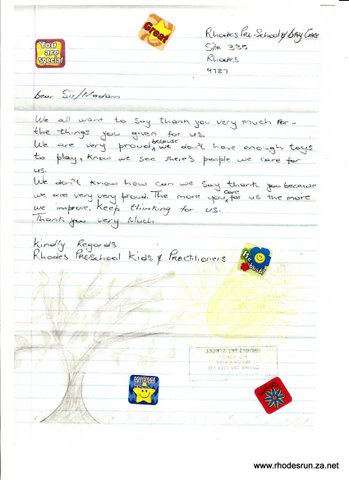 You are Special
Great
Rhodes Pre-School & Day Care
Site 335
Rhodes
9787
Dear Sir/Madam
We all want to say thank you very much for
the things you given for us.
We are very proud, because we don't have enough toys
to play, know we see there's people we care for
us.
We don't know how can we say thank you because
we are very very proud. The more you care for us the more
we improve. Keep thinking for us.
Thank you very Much.
Kindly Regards
Rhodes Preschool Kids & Practitioners
www.rhodesrun.za.net